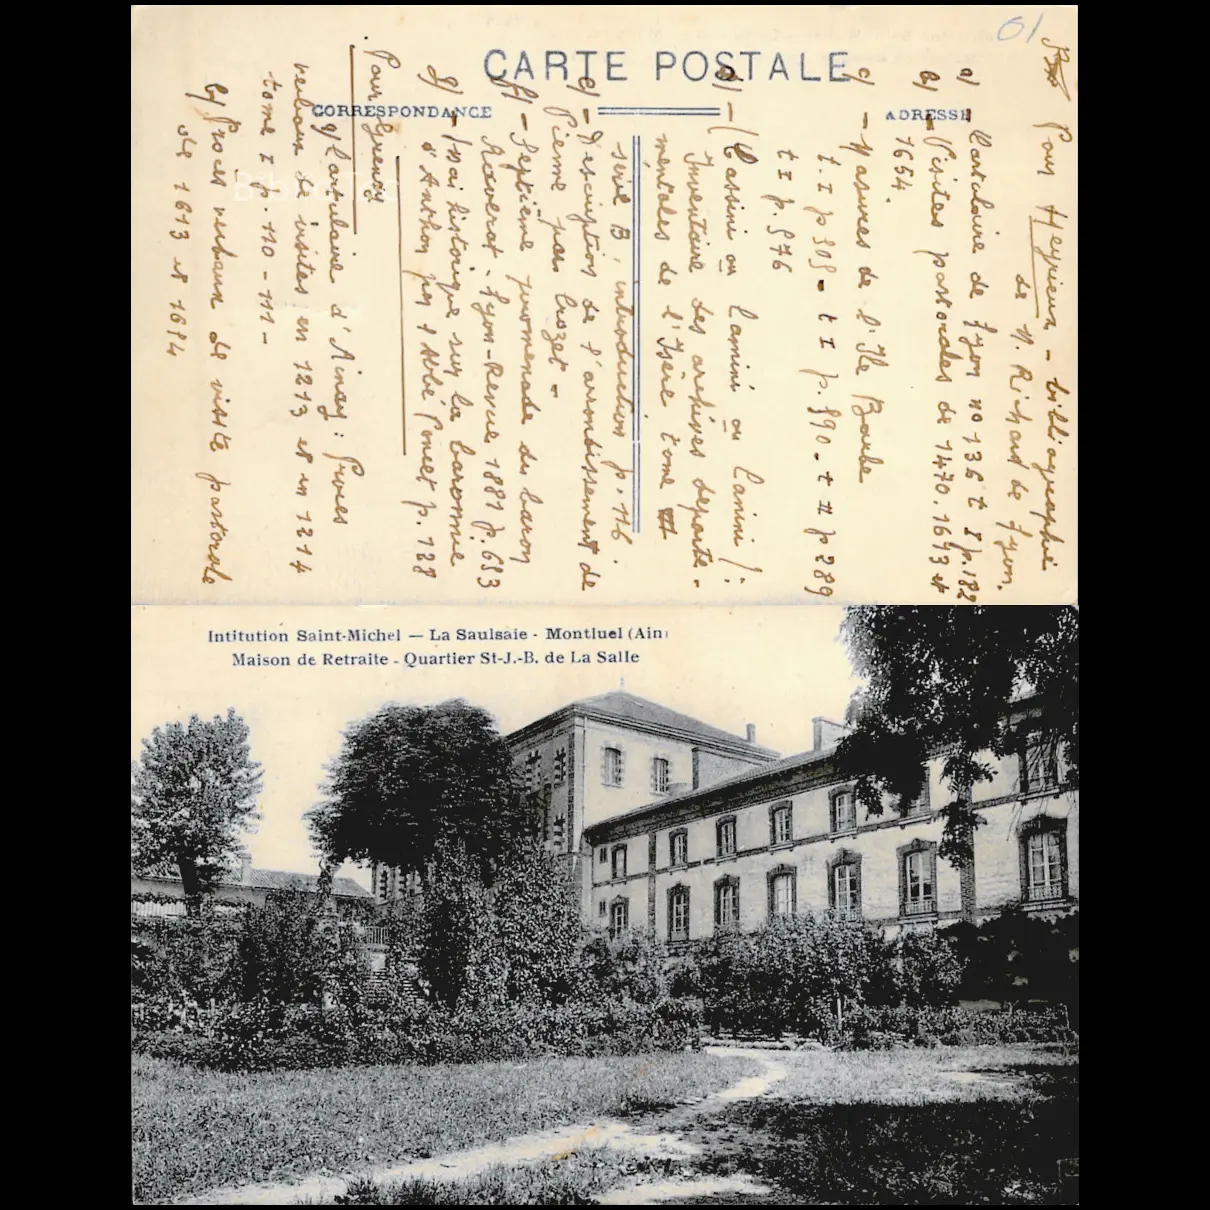 CARTE POSTALE
CORRESPONDANCE
ADRESSE
01
Pour Heyrieux - bibliographie
de M. Richard de Lyon.
a) - Cartulaire de Lyon no 136 t I p. 182
b) - Visites pastorales de 1470. 1613 et
1654.
c) - Masures de l'Ile Barbe
t. I p 305 - t I p. 590 - t II p 289
t I p. 576
d) - (Cassini ou Camini ou Canini) :
Inventaire des archives départe-
mentales de l'Isère tome III
série B, introduction p. 116
e) - Description de l'arrondissement de
Vienne par Crozet -
f) - Septième promenade du baron
Raverat - Lyon-Revue 1881 p. 653
g) - Essai historique sur la baronnie
d'Anthon par l'Abbé Pouet p. 128
Pour Grenay
a) Cartulaire d'Ainay : Procès
verbaux de visites en 1213 et en 1214
tome I p. 110 - 111 -
b) Procès verbaux de visite pastorale
de 1613 et 1614
Intitution Saint-Michel — La Saulsaie - Montluel (Ain)
Maison de Retraite - Quartier St-J.-B. de La Salle